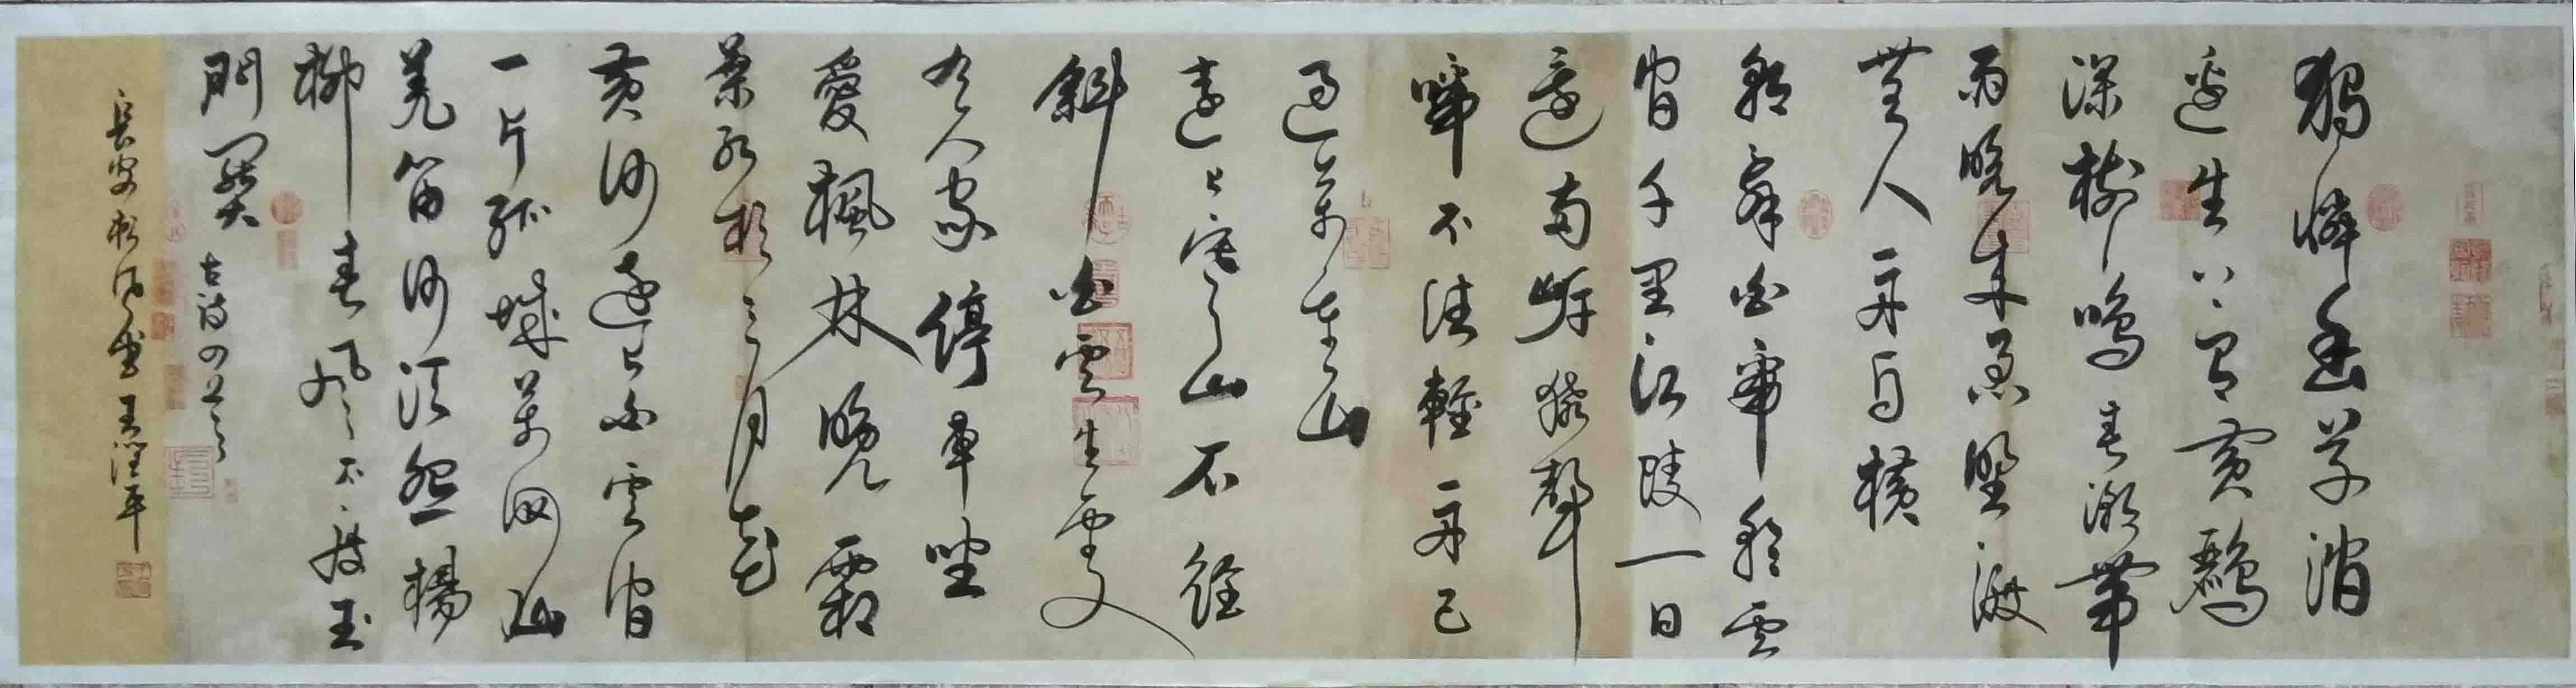 獨憐幽草澗
邊生上有黃鸝
深樹鳴春潮帶
雨晚來急野渡
無人舟自橫
朝辭白帝彩雲
間千里江陵一日
還兩岸猿聲
啼不住輕舟已
過萬重山
遠上寒山石徑
斜白雲生處
有人家停車坐
愛楓林晚霜
葉紅於二月花
黃河遠上白雲間
一片孤城萬仞山
羌笛何須怨楊
柳春風不度玉
門關 古詩四首
長安松風書王平